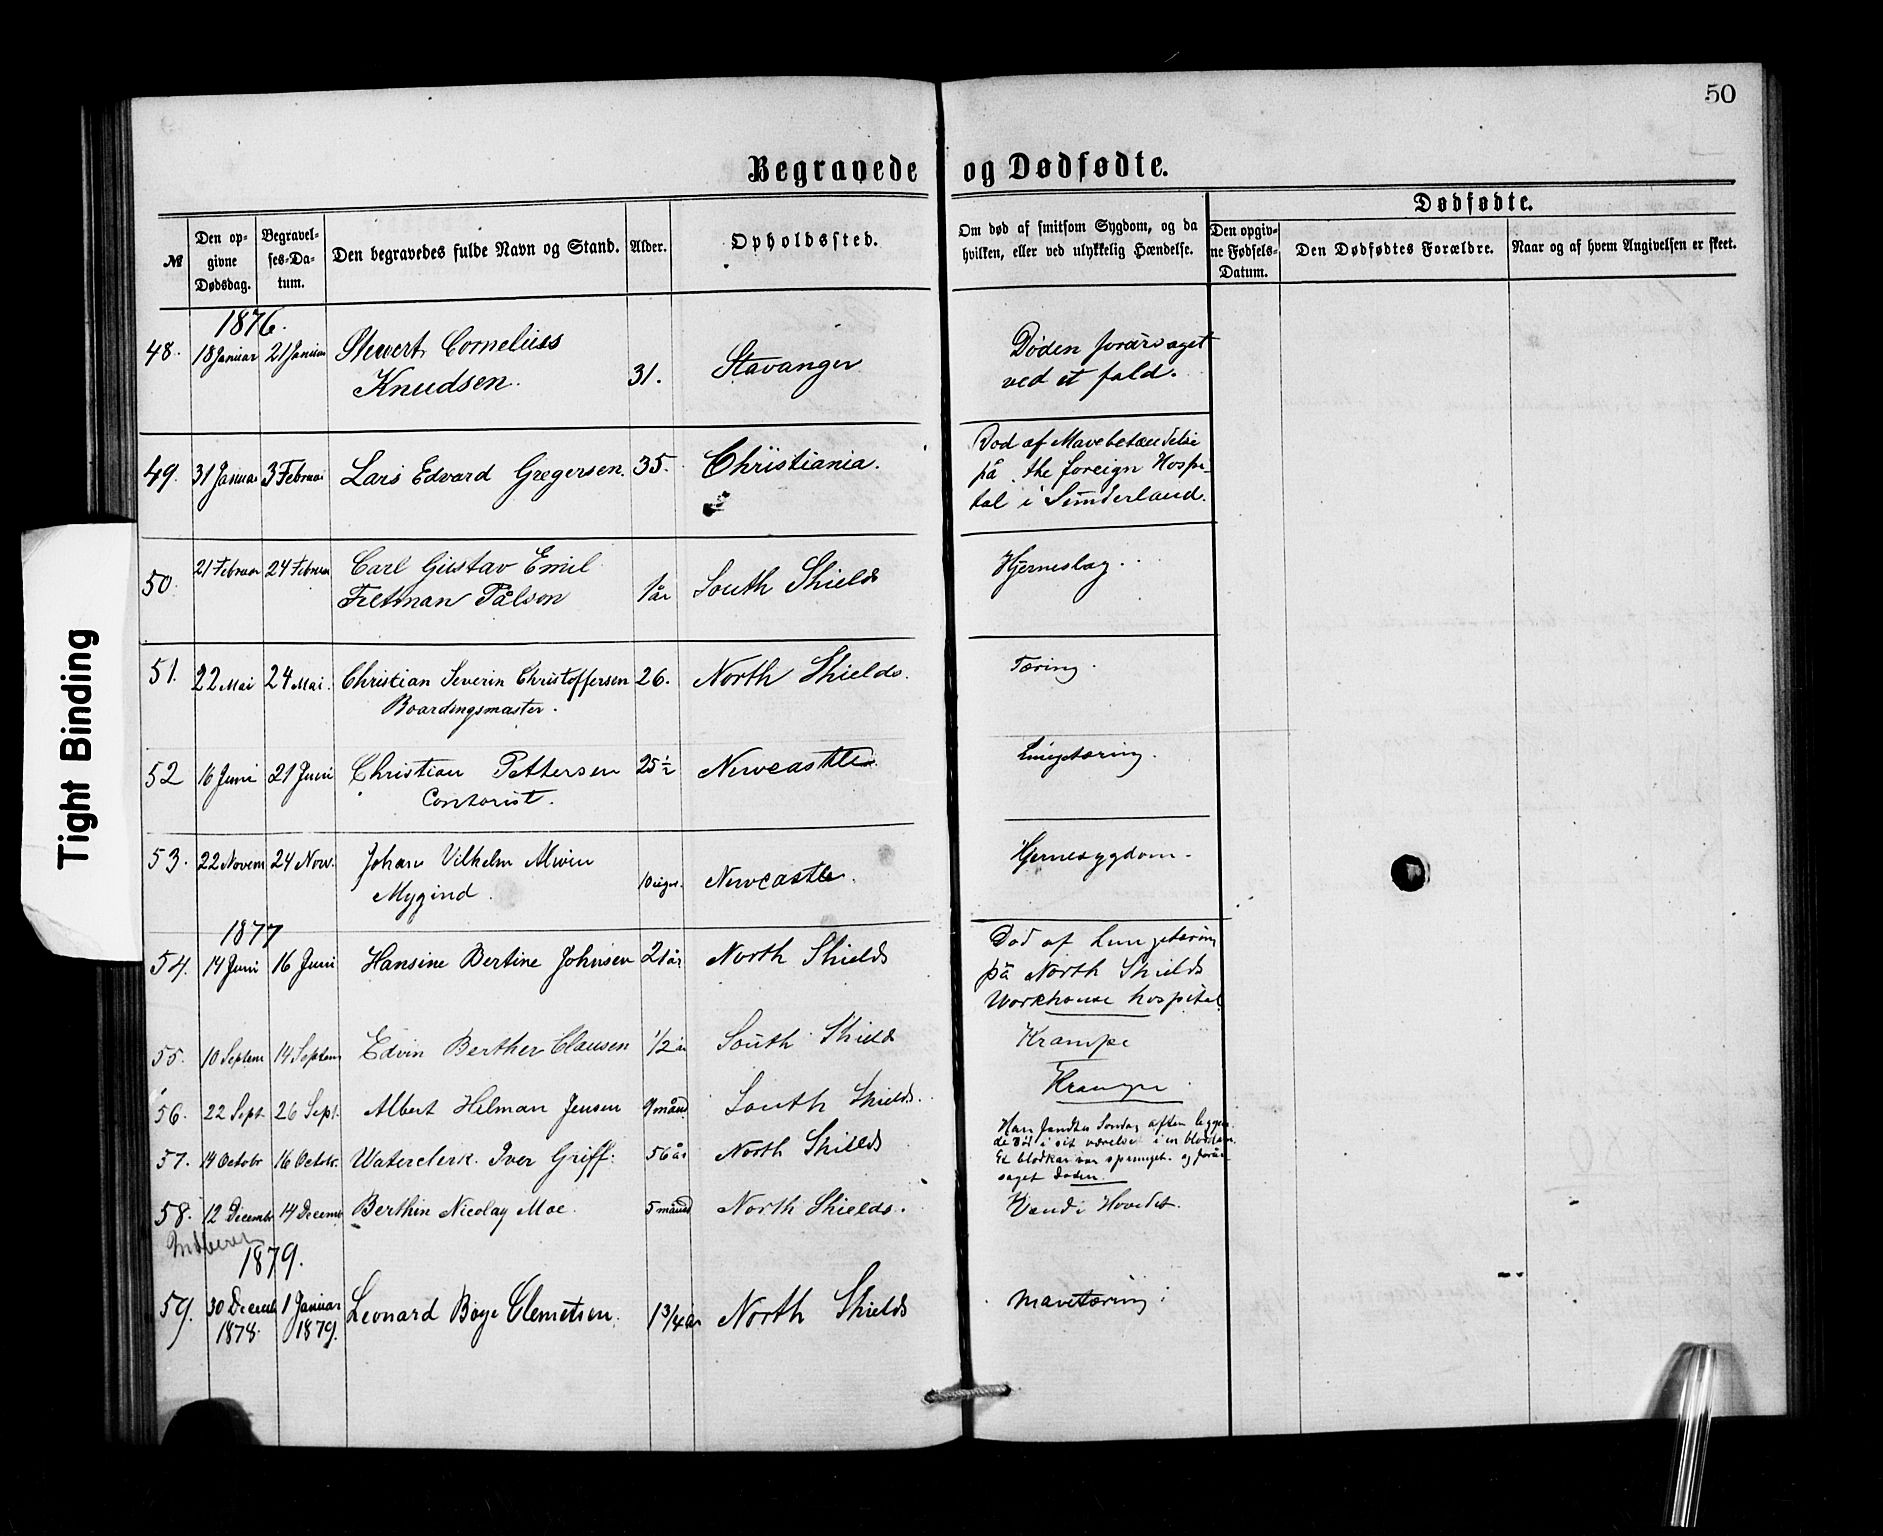 50
Begravede og Dødfødte.
Dødfødte.
№
Den opgivne Dødsdag.
Begravelses-Datum.
Den begravedes fulde Navn og Stand.
Alder.
Opholdssted.
Om død af smitsom Sygdom, og da hvilken, eller ved ulykkelig Hændelse.
Den opgivne Fødsels-Datum.
Den Dødfødtes Forældre.
Naar og af hvem Angivelsen er skeet.
1876.
48. 18 Januar 21 Januar Stewert Cornelius Knudsen. 31. Stavanger Døden forårsaget ved et fald.
49. 31 Januar 3 Februar Lars Edvard Gregersen. 35. Christiania. Dod af Mavebetændelse på the foreign Hospital i Sunderland.
50. 21 Februar 24 Februar Carl Gustav Emil Feltman Pålson 1 år South Shields Hjerneslag.
51. 22 Mai 24 Mai. Christian Severin Christoffersen Boardingsmaster. 26. North Shields. Tæring.
52 16 Juni 21 Juni Christian Pettersen Contorist. 25 1/2 Newcastle. Lungetæring.
53. 22 Novem 24 Nov. Johan Vilhelm Alwin Mygind. 10 uger. Newcastle. Hjernesygdom.
1877
54. 14 Juni 16 Juni Hansine Bertine Johnsen 21 år North Shields Dod af Lungetæring på North Shields Workhouse hospital
55. 10 Septem 14 Septem Edvin Berther Clausen 1/2 år South Shields Krampe
56. 22 Sept. 26 Sept. Albert Helman Jensen 9 månd. South Shields. Krampe
57. 14 Octobr 16 Octobr. Waterclerk. Iver Griff. 56 år North Shields Han fandtes Sondag aften liggende død i sit værelse i en bloddam. Et blodkar var sprunget. og forårsaget Døden.
58. 12 Decembr 14 Decembr Berthin Nicolay Moe. 5 månd North Shields. Vand i Hovedet.
1879.
59. 30 Decemb 1878. 1 Januar 1879. Leonard Boye Clemetsen. 1 3/4 år North Shields Mavetæring.
Tight Binding